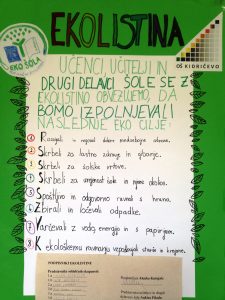 EKOLISTINA
EKO ŠOLA
OŠ KIDRIČEVO
UČENCI, UČITELJI IN
DRUGI DELAVCI ŠOLE SE Z
EKOLISTINO OBVEZUJEMO, DA
BOMO IZPOLNJEVALI
NASLEDNJE EKO CILJE:
Razvijali in negovali dobre medsebojne odnose.
Skrbeli za lastno zdravje in gibanje.
Skrbeli za šolske vrtove.
Skrbeli za urejenost šole in njene okolice.
Spoštljivo in odgovorno ravnali s hrano.
Zbirali in ločevali odpadke.
Varčevali z vodo, energijo in s papirjem.
K ekološkemu ravnanju vzpodbujali starše in krajane.
PODPISNIKI EKOLISTINE